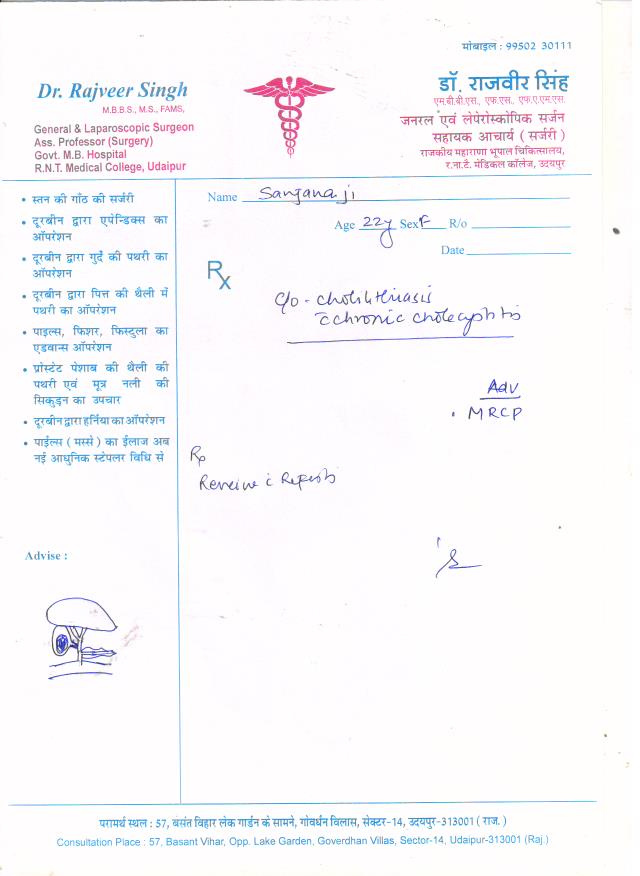 मोबाइल : 99502 30111
Dr. Rajveer Singh
M.B.B.S., M.S., FAMS,
General & Laparoscopic Surgeon
Ass. Professor (Surgery)
Govt. M.B. Hospital
R.N.T. Medical College, Udaipur
डॉ. राजवीर सिंह
एम.बी.बी.एस., एफ.एस., एफ.ए.एम.एस.
जनरल एवं लेपेरोस्कोपिक सर्जन
सहायक आचार्य ( सर्जरी )
राजकीय महाराणा भूपाल चिकित्सालय,
र.ना.टै. मेडिकल कॉलेज, उदयपुर
• स्तन की गाँठ की सर्जरी
• दूरबीन द्वारा एपेन्डिक्स का
ऑपरेशन
• दूरबीन द्वारा गुर्दे की पथरी का
ऑपरेशन
• दूरबीन द्वारा पित्त की थैली में
पथरी का ऑपरेशन
• पाइल्स, फिशर, फिस्टुला का
एडवान्स ऑपरेशन
• प्रोस्टेट पेशाब की थैली की
पथरी एवं मूत्र नली की
सिकुड़न का उपचार
• दूरबीन द्वारा हर्निया का ऑपरेशन
• पाईल्स ( मस्से ) का ईलाज अब
नई आधुनिक स्टेपलर विधि से
Advise :
Name Sanjana ji
Age 22y Sex F R/o
Date
Rx
c/o - cholilithiasis
c chronic cholecyptitis
Adv
• MRCP
Rp
Review c Reports
परामर्थ स्थल : 57, बसंत विहार लेक गार्डन के सामने, गोवर्धन विलास, सेक्टर-14, उदयपुर-313001 ( राज. )
Consultation Place : 57, Basant Vihar, Opp. Lake Garden, Goverdhan Villas, Sector-14, Udaipur-313001 (Raj.)